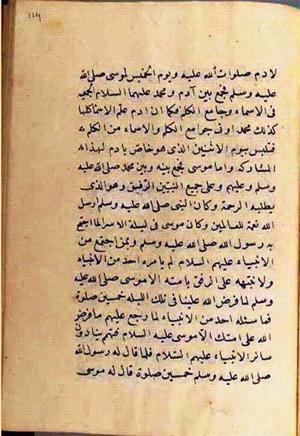 لادم صلوات الله عليه ويوم الخميس لموسى صلى الله
عليه وسلم فجمع بين آدم ومحمد عليهما السلام الجمعية
فى الاسماء وجامع الكلم فكما ان ادم علم الاسماء كلها
كذلك محمد اوتى جوامع الكلم والاسماء من الكلم
فتلبس بيوم الاثنين الذى هو خاص بادم لهذه
المشاركة واما موسى فجمع بينه وبين محمد صلى الله عليه
وسلم وعليهم وعلى جميع النبيين الرفق وهو الذى
يطلبه الرحمة وكان النبى صلى الله عليه وسلم ارسل
الله رحمة للعالمين وكان موسى فى ليلة الاسرا لما اجتمع
به رسول الله صلى الله عليه وسلم وبمن اجتمع من
الانبياء عليهم السلام لم يامره احد من الانبياء
ولا نبهه على الرفق بامته الا موسى صلى الله عليه
وسلم لما فرض الله علينا فى تلك الليله خمسين صلوة
فما سئله احد من الانبياء لما رجع عليهم ما فرض
الله على امتك الا موسى عليه السلام فتهم بنا دون
سائر الانبياء عليهم السلام فلما قال له رسول الله
صلى الله عليه وسلم خمسين صلوة قال له موسى